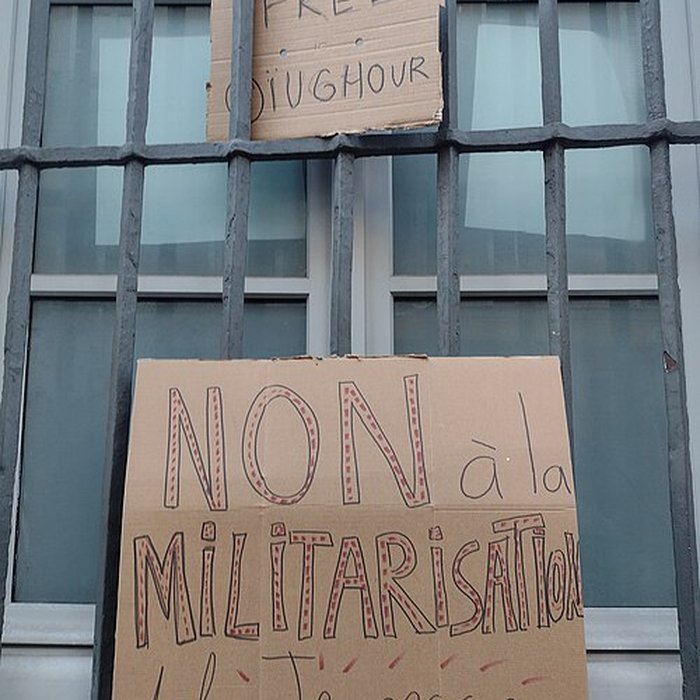 FREE
OÏUGHOUR
NON à la
MiLITARiSATiON